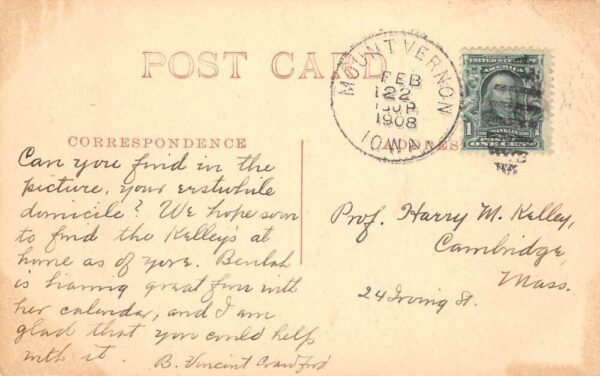 POST CARD
MOUNT VERNON
FEB
22
1908
IOWA
UNITED STATES OF
AMERICA
1
FRANKLIN
ONE CENT
CORRESPONDENCE
Can you find in the
picture, your erstwhile
domicile? We hope soon
to find the Kelley's at
home as of yore. Beulah
is having great fun with
her calendar, and I am
glad that you could help
with it.
B. Vincent Crawford
Prof. Harry M. Kelley,
Cambridge,
Mass.
24 Irving St.